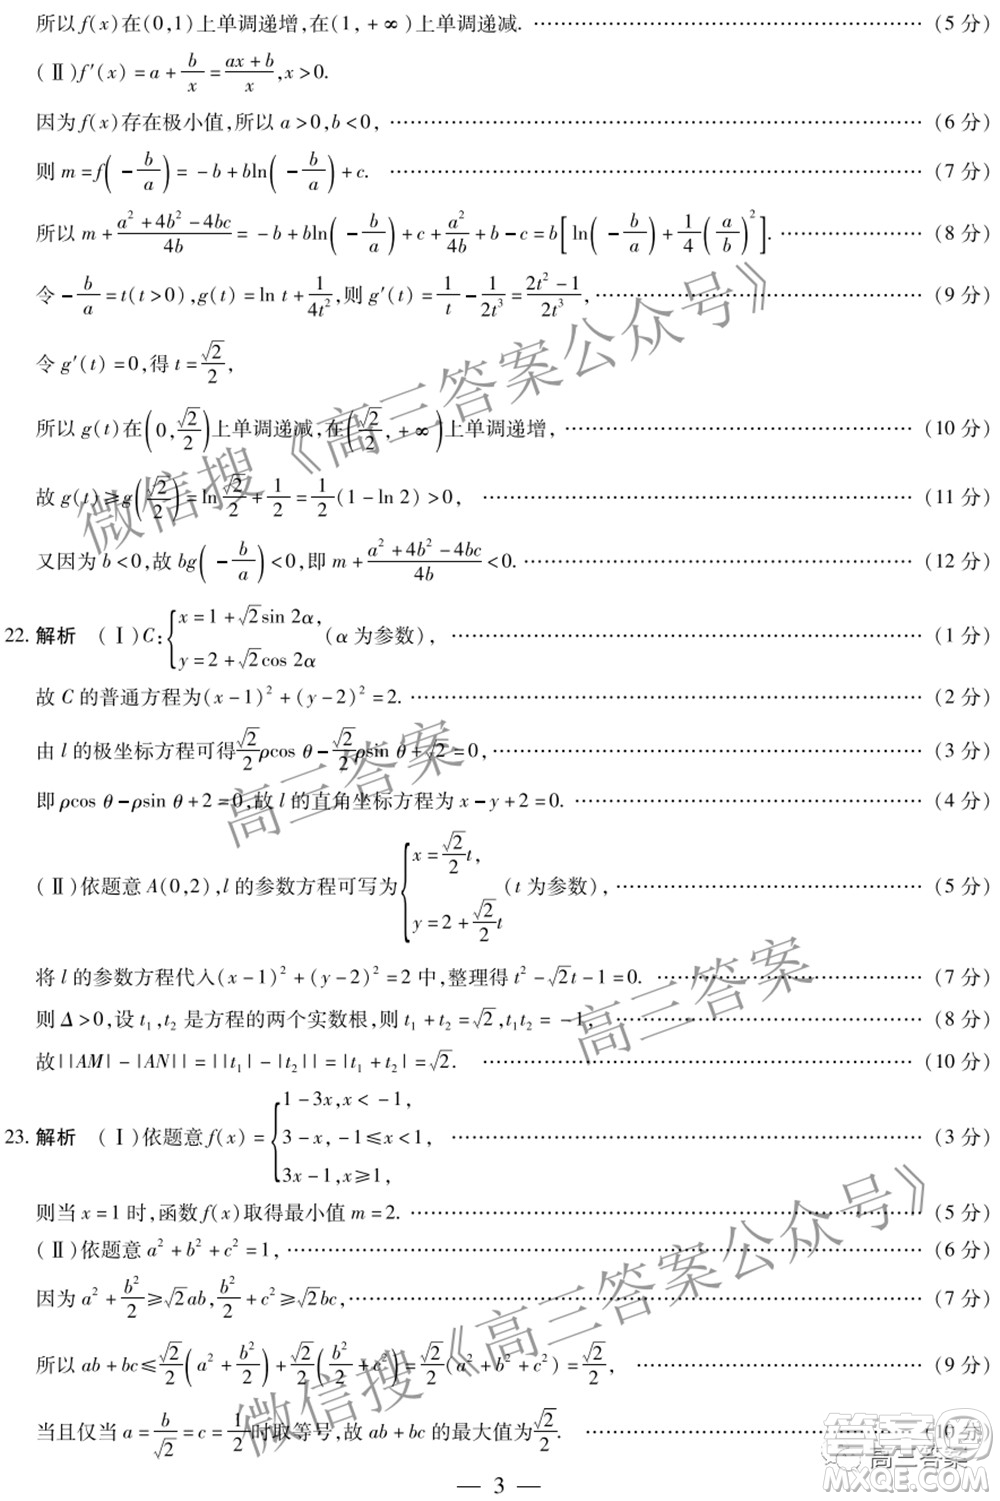 所以f(x)在(0,1)上单调递增,在(1,+∞)上单调递减. ……………………(5分)
(Ⅱ)f′(x)=a+b/x=(ax+b)/x,x>0.
因为f(x)存在极小值,所以a>0,b<0, ……………………(6分)
则m=f(-b/a)=-b+bln(-b/a)+c. ……………………(7分)
所以m+(a²+4b²-4bc)/4b=-b+bln(-b/a)+c+a²/4b+b-c=b[ln(-b/a)+1/4(a/b)²]. ……………………(8分)
令-b/a=t(t>0),g(t)=ln t+1/4t²,则g′(t)=1/t-1/2t³=(2t²-1)/2t³, ……………………(9分)
令g′(t)=0,得t=√2/2,
所以g(t)在(0,√2/2)上单调递减,在(√2/2,+∞)上单调递增, ……………………(10分)
故g(t)≥g(√2/2)=ln√2/2+1/2=1/2(1-ln 2)>0, ……………………(11分)
又因为b<0,故bg(-b/a)<0,即m+(a²+4b²-4bc)/4b<0. ……………………(12分)
22. 解析 (Ⅰ)C:{x=1+√2sin 2α, y=2+√2cos 2α (α为参数), ……………………(1分)
故C的普通方程为(x-1)²+(y-2)²=2. ……………………(2分)
由l的极坐标方程可得√2/2ρcos θ-√2/2ρsin θ+√2=0, ……………………(3分)
即ρcos θ-ρsin θ+2=0,故l的直角坐标方程为x-y+2=0. ……………………(4分)
(Ⅱ)依题意A(0,2),l的参数方程可写为{x=√2/2t, y=2+√2/2t (t为参数), ……………………(5分)
将l的参数方程代入(x-1)²+(y-2)²=2中,整理得t²-√2t-1=0. ……………………(7分)
则Δ>0,设t₁,t₂是方程的两个实数根,则t₁+t₂=√2,t₁t₂=-1, ……………………(8分)
故||AM|-|AN||=||t₁|-|t₂||=|t₁+t₂|=√2. ……………………(10分)
23. 解析 (Ⅰ)依题意f(x)={1-3x,x<-1, 3-x,-1≤x<1, 3x-1,x≥1, ……………………(3分)
则当x=1时,函数f(x)取得最小值m=2. ……………………(5分)
(Ⅱ)依题意a²+b²+c²=1, ……………………(6分)
因为a²+b²/2≥√2ab,b²/2+c²≥√2bc, ……………………(7分)
所以ab+bc≤√2/2(a²+b²/2)+√2/2(b²/2+c²)=√2/2(a²+b²+c²)=√2/2, ……………………(9分)
当且仅当a=b/√2=c=1/2时取等号,故ab+bc的最大值为√2/2. ……………………(10分)
— 3 —
微信搜《高三答案公众号》
高三答案
高三答案
微信搜《高三答案公众号》
高三答案
答案圈
MXQE.COM